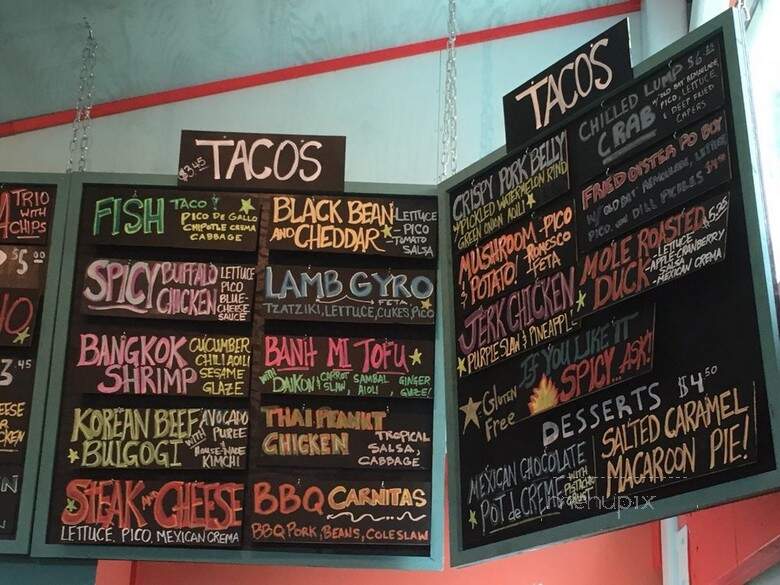 TRIO
WITH
CHIPS
5.00
3.45
CHEESE
$3.45
TACOS
FISH TACO!
PICO DE GALLO
CHIPOTLE CREMA
CABBAGE
SPICY BUFFALO CHICKEN
LETTUCE
PICO
BLUE-
CHEESE
SAUCE
BANGKOK
SHRIMP
CUCUMBER
CHILI AOILI
SESAME
GLAZE
KOREAN BEEF
BULGOGI
WITH
AVOCADO
PUREE
HOUSE-MADE
KIMCHI
STEAK AND CHEESE
LETTUCE, PICO, MEXICAN CREMA
BLACK BEAN
AND CHEDDAR
LETTUCE
PICO
-TOMATO
SALSA
LAMB GYRO
FETA
TZATZIKI, LETTUCE, CUKES, PICO
BANH MI TOFU
WITH DAIKON & CARROT SLAW, SAMBAL AIOLI, GINGER GLAZE!
THAI PEANUT
CHICKEN
TROPICAL
SALSA,
CABBAGE
BBQ CARNITAS
BBQ PORK, BEANS, COLESLAW
TACOS
CRISPY PORK BELLY
W/ PICKLED WATERMELON RIND
GREEN ONION AOILI
MUSHROOM PICO
& POTATO! ROMESCO
FETA
JERK CHICKEN
PURPLE SLAW & PINEAPPLE
IF YOU LIKE IT
SPICY... ASK!
-GLUTEN
FREE
CHILLED LUMP
CRAB
W/ OLD BAY REMOULADE,
PICO, LETTUCE,
& DEEP FRIED
CAPERS
FRIED OYSTER PO BOY
W/ OLD BAY REMOULADE, LETTUCE
PICO, AND DILL PICKLES
MOLE ROASTED
DUCK
$5.95
-LETTUCE
-APPLE-CRANBERRY
SALSA
-MEXICAN CREMA
DESSERTS $4.50
MEXICAN CHOCOLATE
POT de CREME
WITH
PISTACHIO
SALTED CARAMEL
MACAROON PIE!
menupix